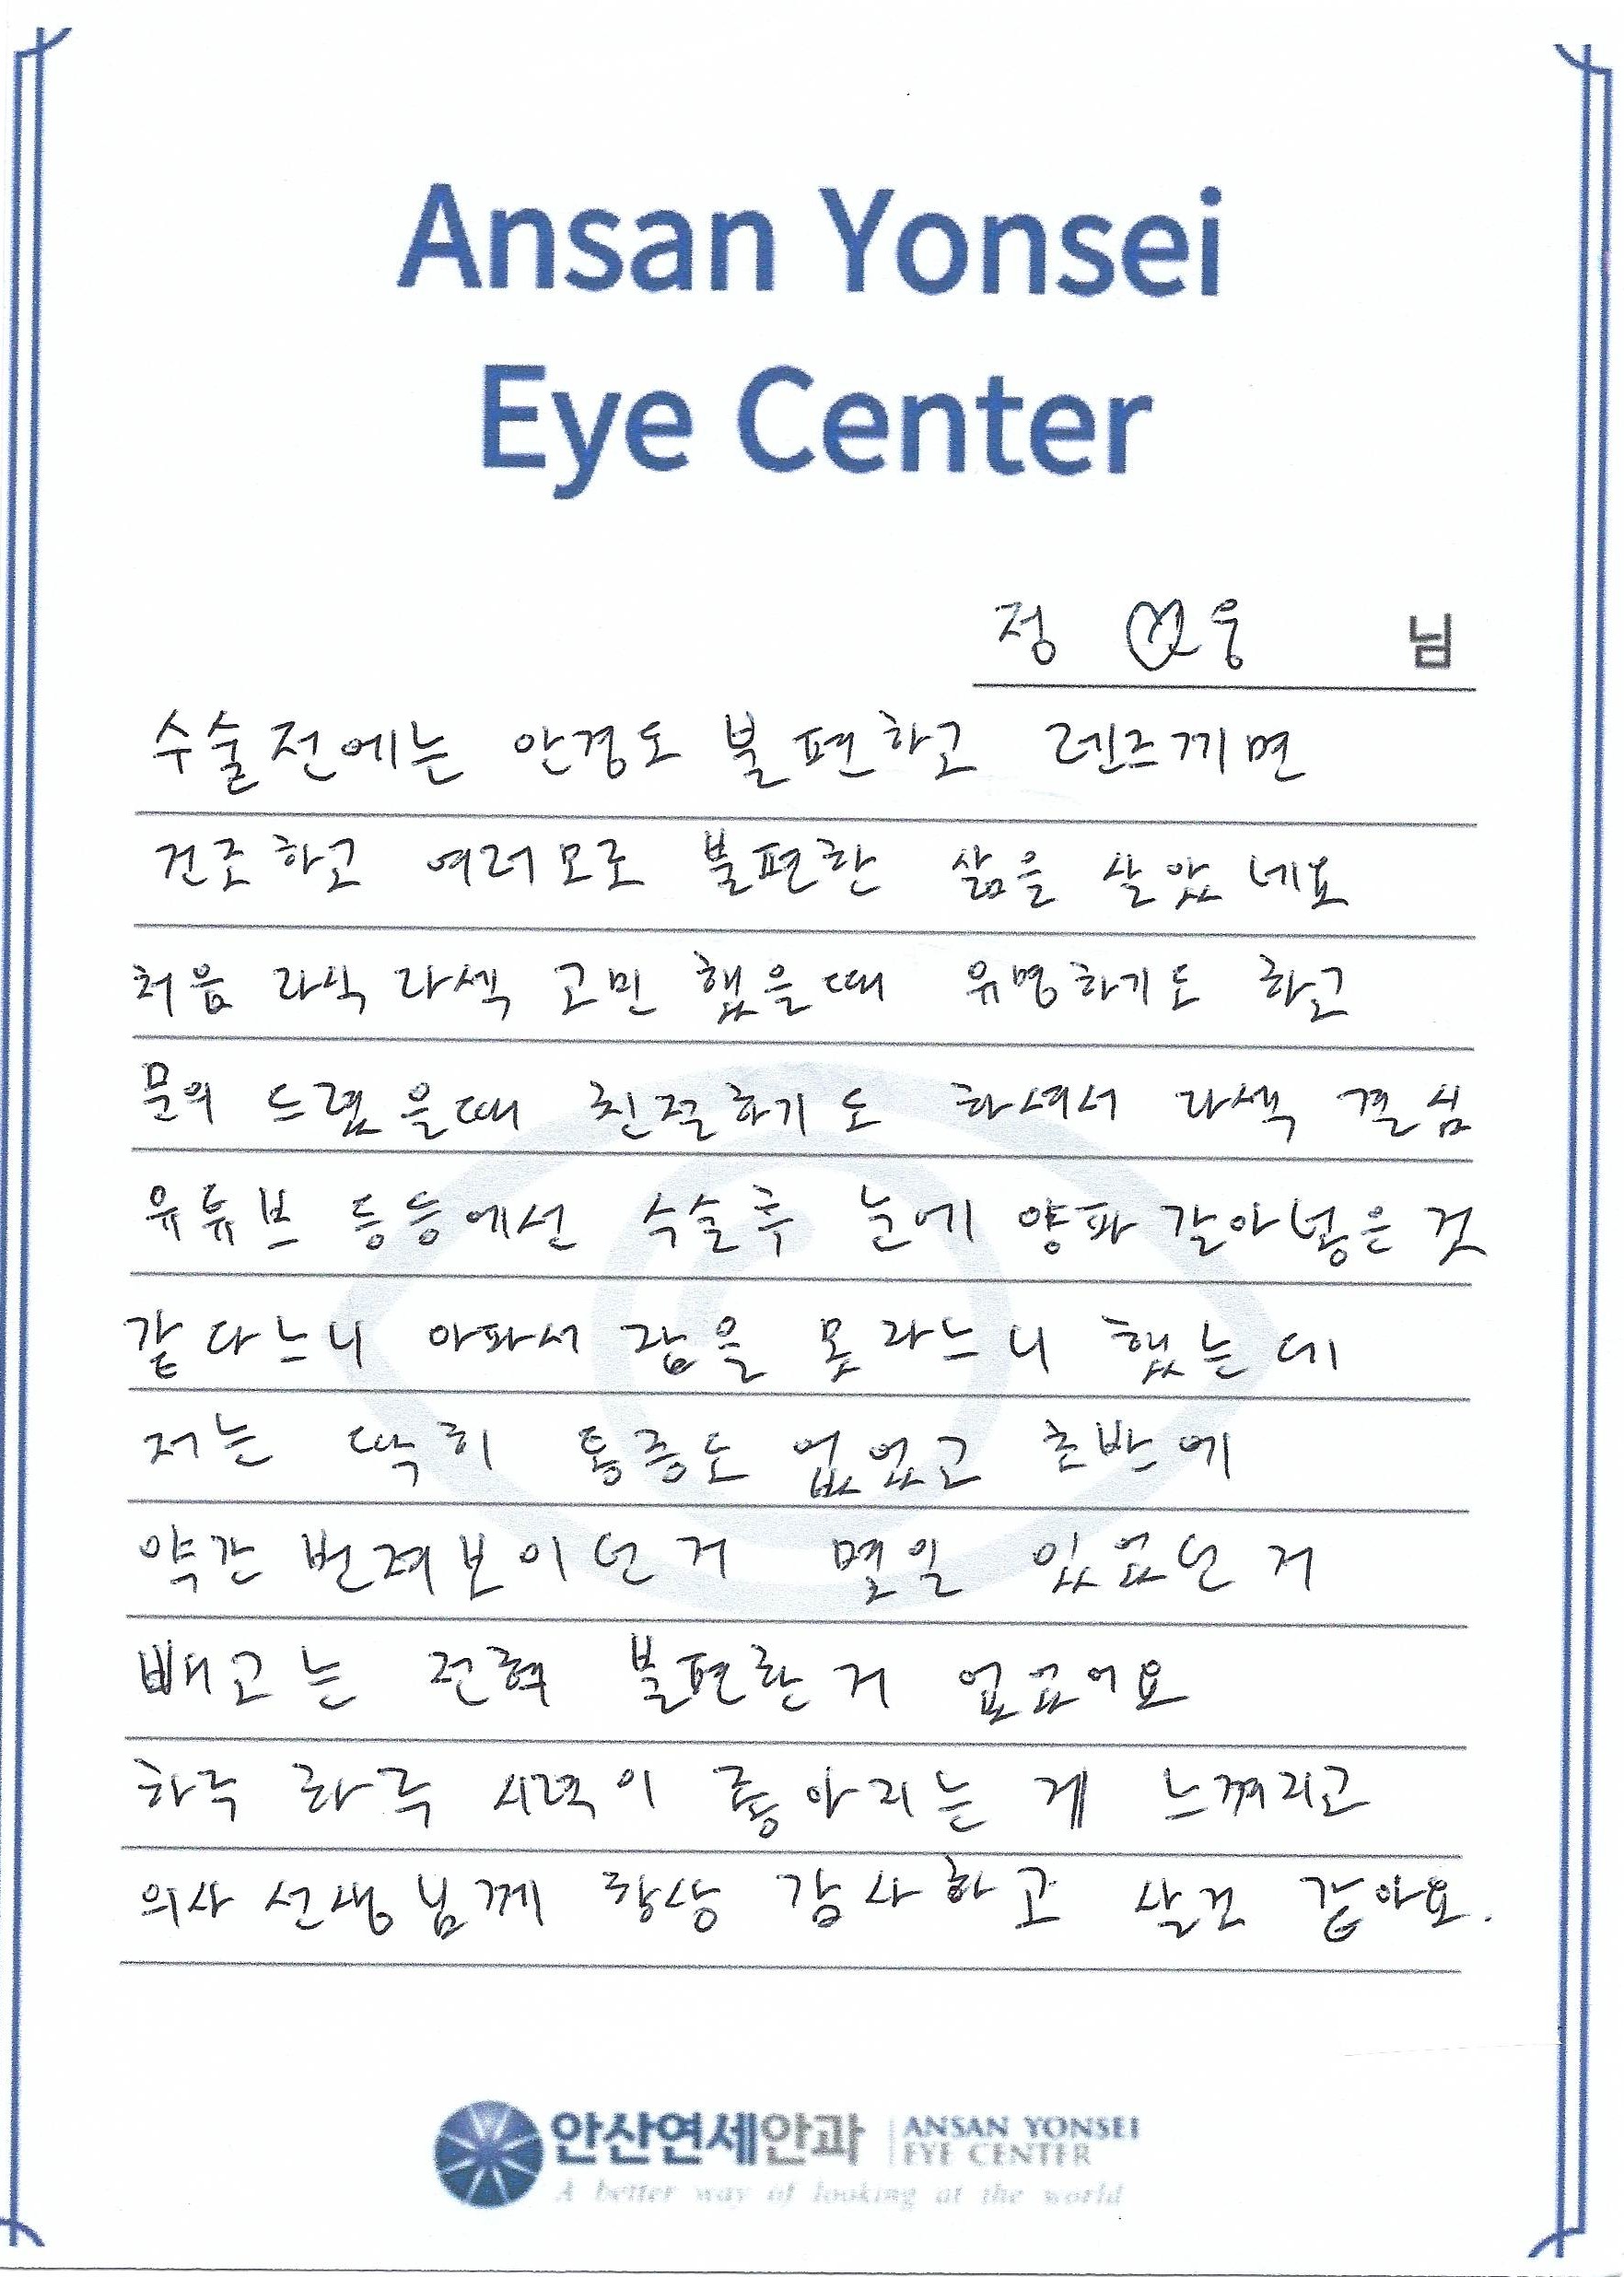 Ansan Yonsei
Eye Center
정 ♡웅 님
수술전에는 안경도 불편하고 렌즈끼면
건조하고 여러모로 불편한 삶을 살았네요
처음 라식라섹 고민했을때 유명하기도 하고
문의 드렸을때 친절하기도 하셔서 라섹 결심
유튜브 등등에선 수술후 눈에 양파 갈아넣은 것
같다느니 아파서 잠을 못자느니 했는데
저는 딱히 통증도 없었고 초반에
약간 번져보이던 거 몇일 있었던 거
빼고는 전혀 불편한거 없었어요
하루 하루 시력이 좋아지는 게 느껴지고
의사 선생님께 항상 감사하고 살것 같아요.
안산연세안과 ANSAN YONSEI
EYE CENTER
A better way of looking at the world